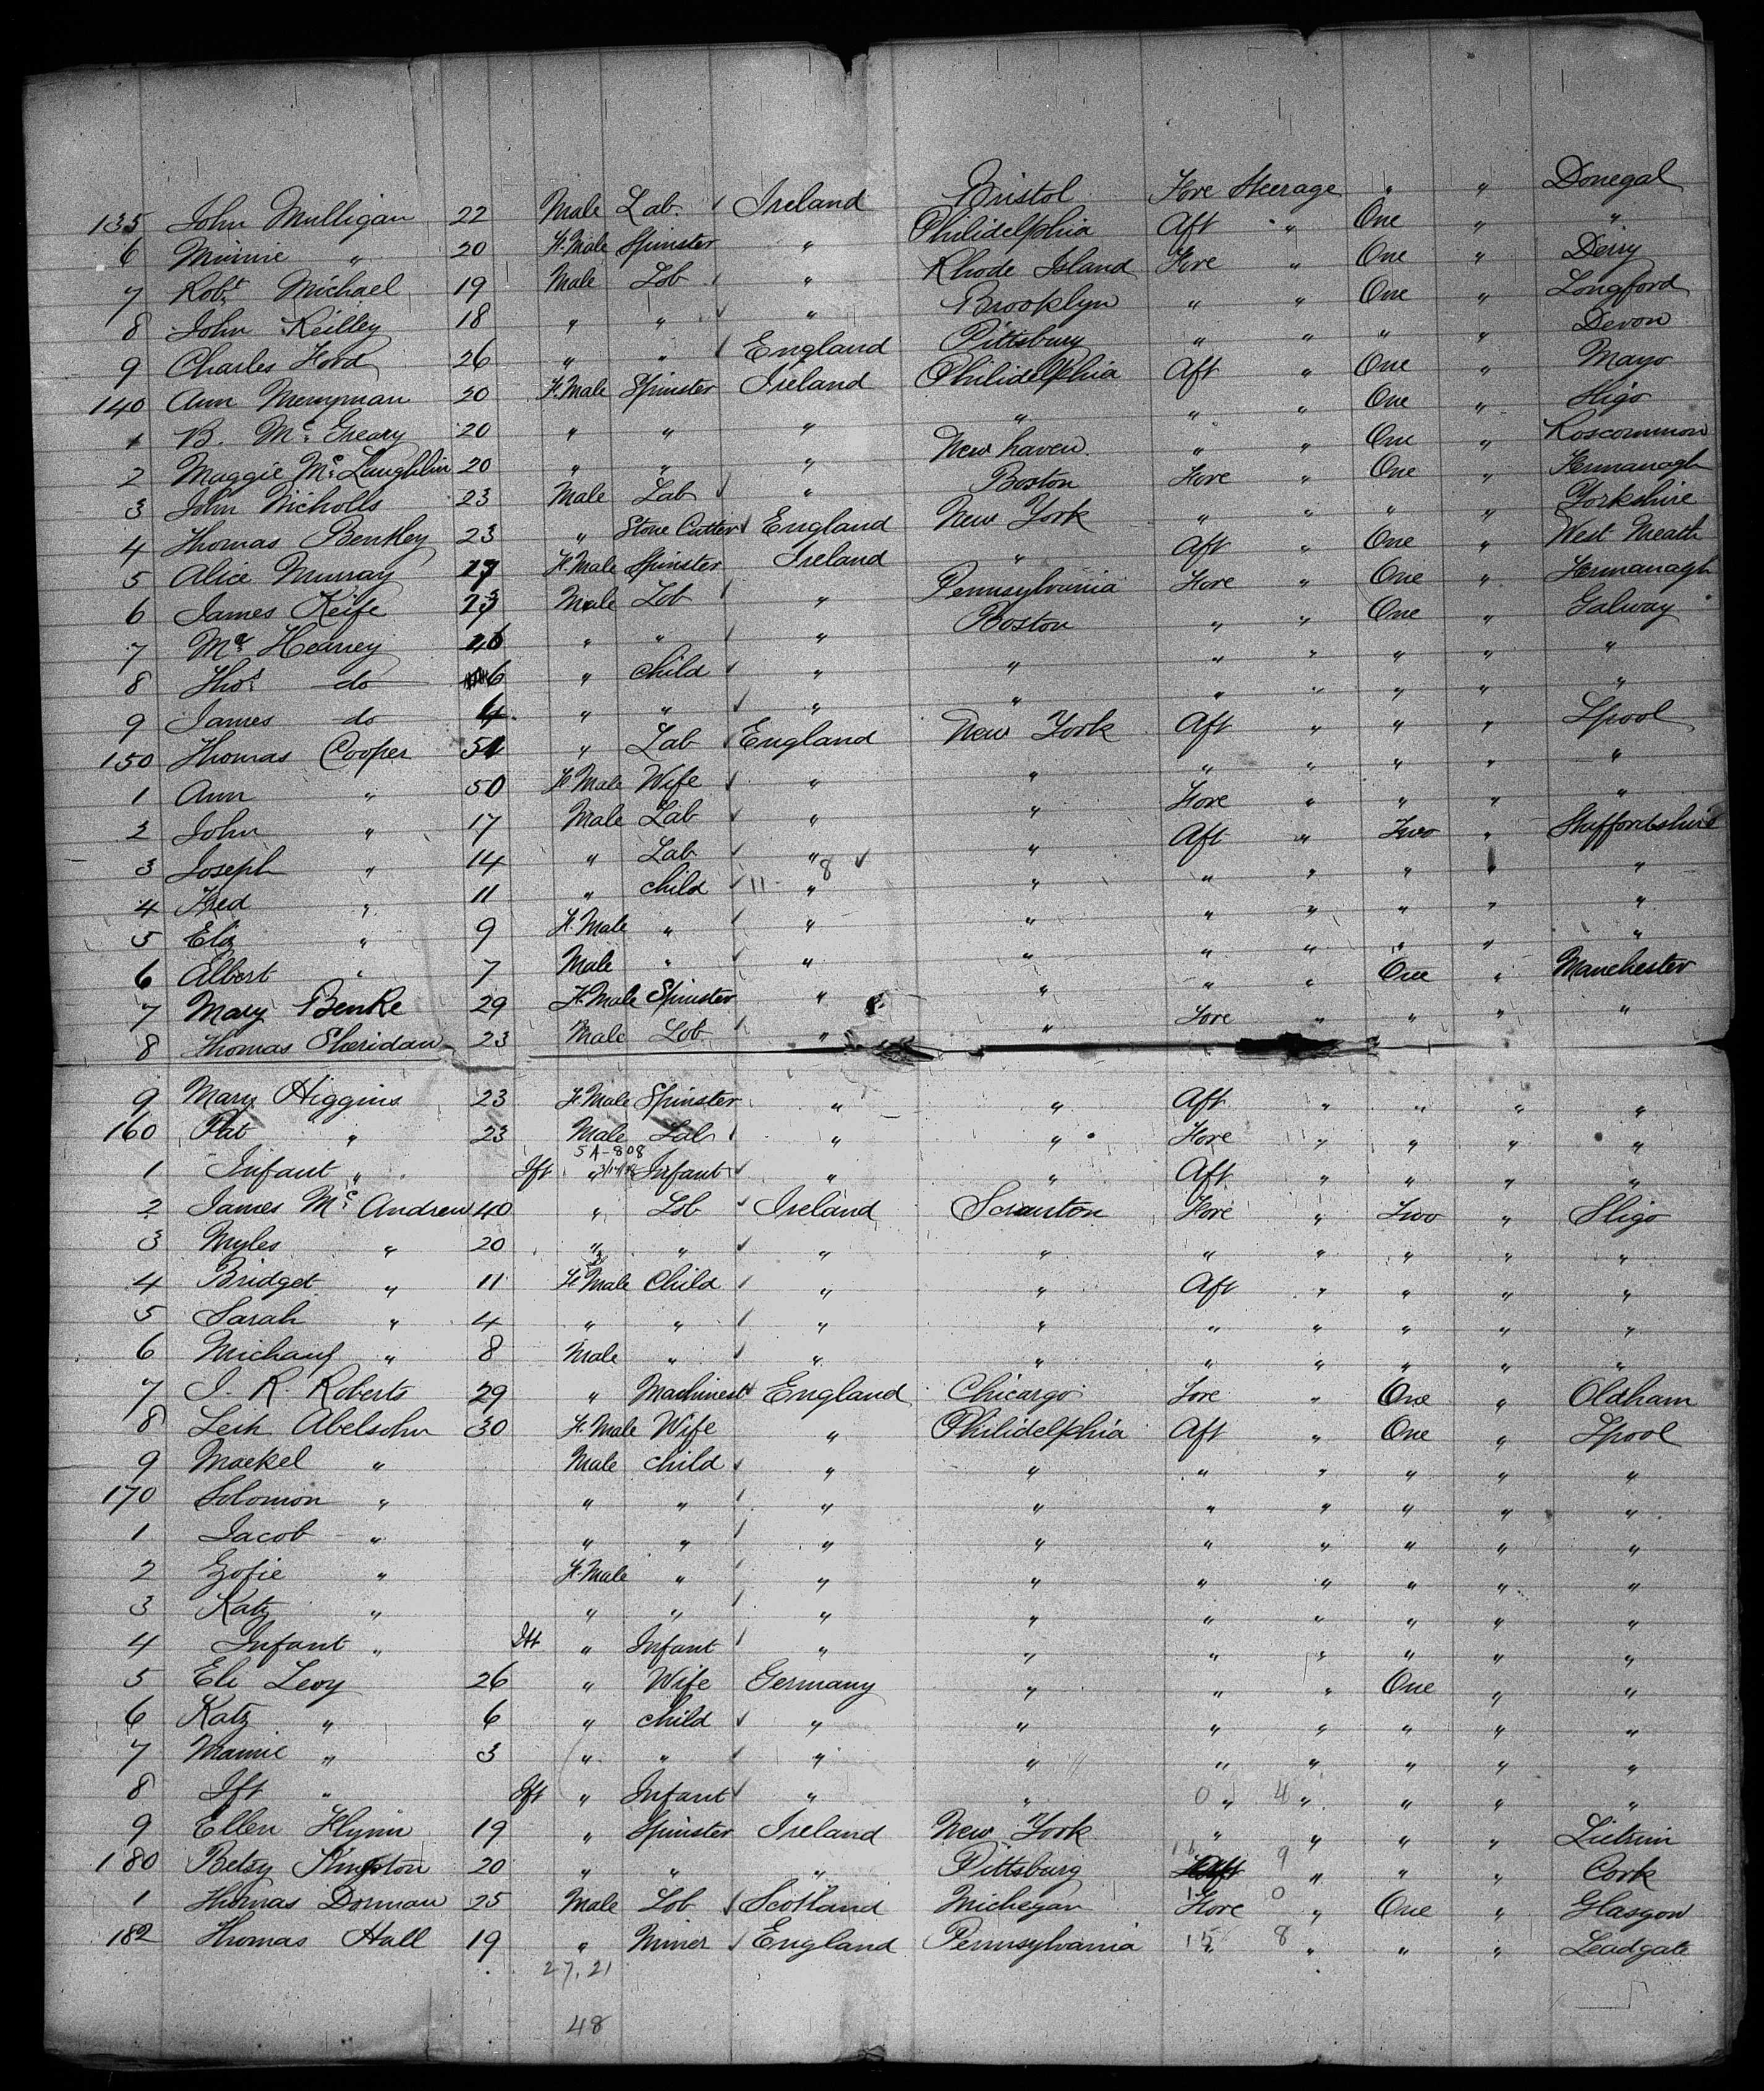 135 John Mulligan 22 Male Lab. ✓ Ireland Bristol Fore Steerage " " Donegal
6 Minnie " 20 F.Male Spinster " Philidelphia Aft " One " "
7 Robt Michael 19 Male Lab ✓ " Rhode Island Fore " One " Derry
8 John Keilley 18 " " ✓ " Brooklyn " " One " Longford
9 Charles Ford 26 " " ✓ England Pittsbury " " " " Devon
140 Ann Merryman 20 F.Male Spinster Ireland Philidelphia Aft " One " Mayo
1 B. Mc Greary 20 " " " " " " One " Sligo
2 Maggie Mc Laughlin 20 " " " New haven " " One " Roscommon
3 John Nicholls 23 Male Lab ✓ " Boston Fore " One " Fermanagh
4 Thomas Bentley 23 " Stone Cutter ✓ England New York " " " " Yorkshire
5 Alice Murray 17 F.Male Spinster Ireland " Aft " One " West Meath
6 James Keife 23 Male Lab ✓ " Pennsylvania Fore " One " Fermanagh
7 Heaney " " ✓ " Boston " " One " Galway
8 Thos do 6 " child ✓ " " " " " " "
9 James do 4 " " ✓ " " " " " " "
150 Thomas Cooper 51 " Lab ✓ England New York Aft " " " Lpool
1 Ann " 50 F.Male Wife ✓ " " " " " " "
2 John " 17 Male Lab ✓ " " Fore " " " "
3 Joseph " 14 " Lab ✓ " " Aft " Two " Staffordshire
4 Fred " 11 " child ✓ 11 - 8 ✓ " " " " " " "
5 Eliz " 9 F.Male " ✓ " " " " " " "
6 Albert " 7 Male " ✓ " " " " " " "
7 Mary Benke 29 F.Male Spinster " " " " One " Manchester
8 Thomas Sheridan 23 Male Lab. ✓ " " Fore " " " "
9 Mary Higgins 23 F.Male Spinster " " Aft " " " "
160 Pat " 23 Male Lab ✓ " " Fore " " " "
5A-808
1 Infant " Ift " Infant ✓ " " Aft " " " "
2 James Mc Andrew 40 " Lab ✓ Ireland Scranton Fore " Two " Sligo
3 Myles " 20 " " ✓ " " " " " " "
4 Bridget " 11 F.Male Child ✓ " " Aft " " " "
5 Sarah " 4 " " ✓ " " " " " " "
6 Michael " 8 Male " ✓ " " " " " " "
7 J. R. Roberts 29 " Machinest ✓ England Chicargo Fore " One " Oldham
8 Leih Abelsohn 30 F.Male Wife " Philidelphia Aft " One " Lpool
9 Maekel " Male child ✓ " " " " " " "
170 Solomon " " " ✓ " " " " " " "
1 Jacob " " " ✓ " " " " " " "
2 Zofie " F.Male " ✓ " " " " " " "
3 Katz " " " ✓ " " " " " " "
4 Infant " Ift " Infant ✓ " " " " " " "
5 Eli Levy 26 " Wife Germany " " " One " "
6 Katz " 6 " child ✓ " " " " " " "
7 Mamie " 3 " " ✓ " " " " " " "
8 Ift " Ift " Infant ✓ " " " " " " "
9 Ellen Flynn 19 " Spinster Ireland New York " " " " Lietrim
180 Betsy Kingston 20 " " " Pittsburg " " " Cork
1 Thomas Dorman 25 Male Lab ✓ Scotland Michegan Fore " One " Glasgow
182 Thomas Hall 19 " Miner ✓ England Pennsylvania " " " " Leadgate
27, 21
48